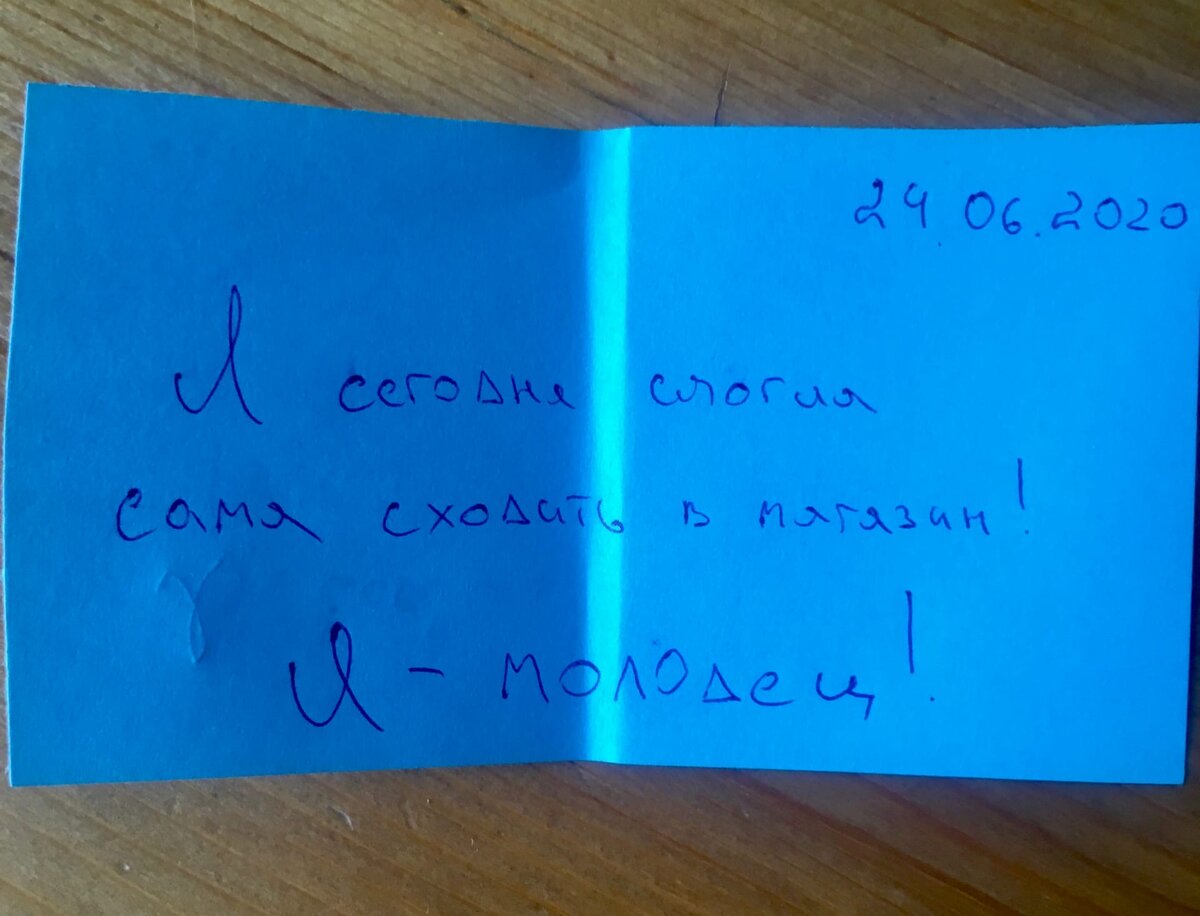 24.06.2020
Я сегодня смогла
сама сходить в магазин!
Я - молодец!